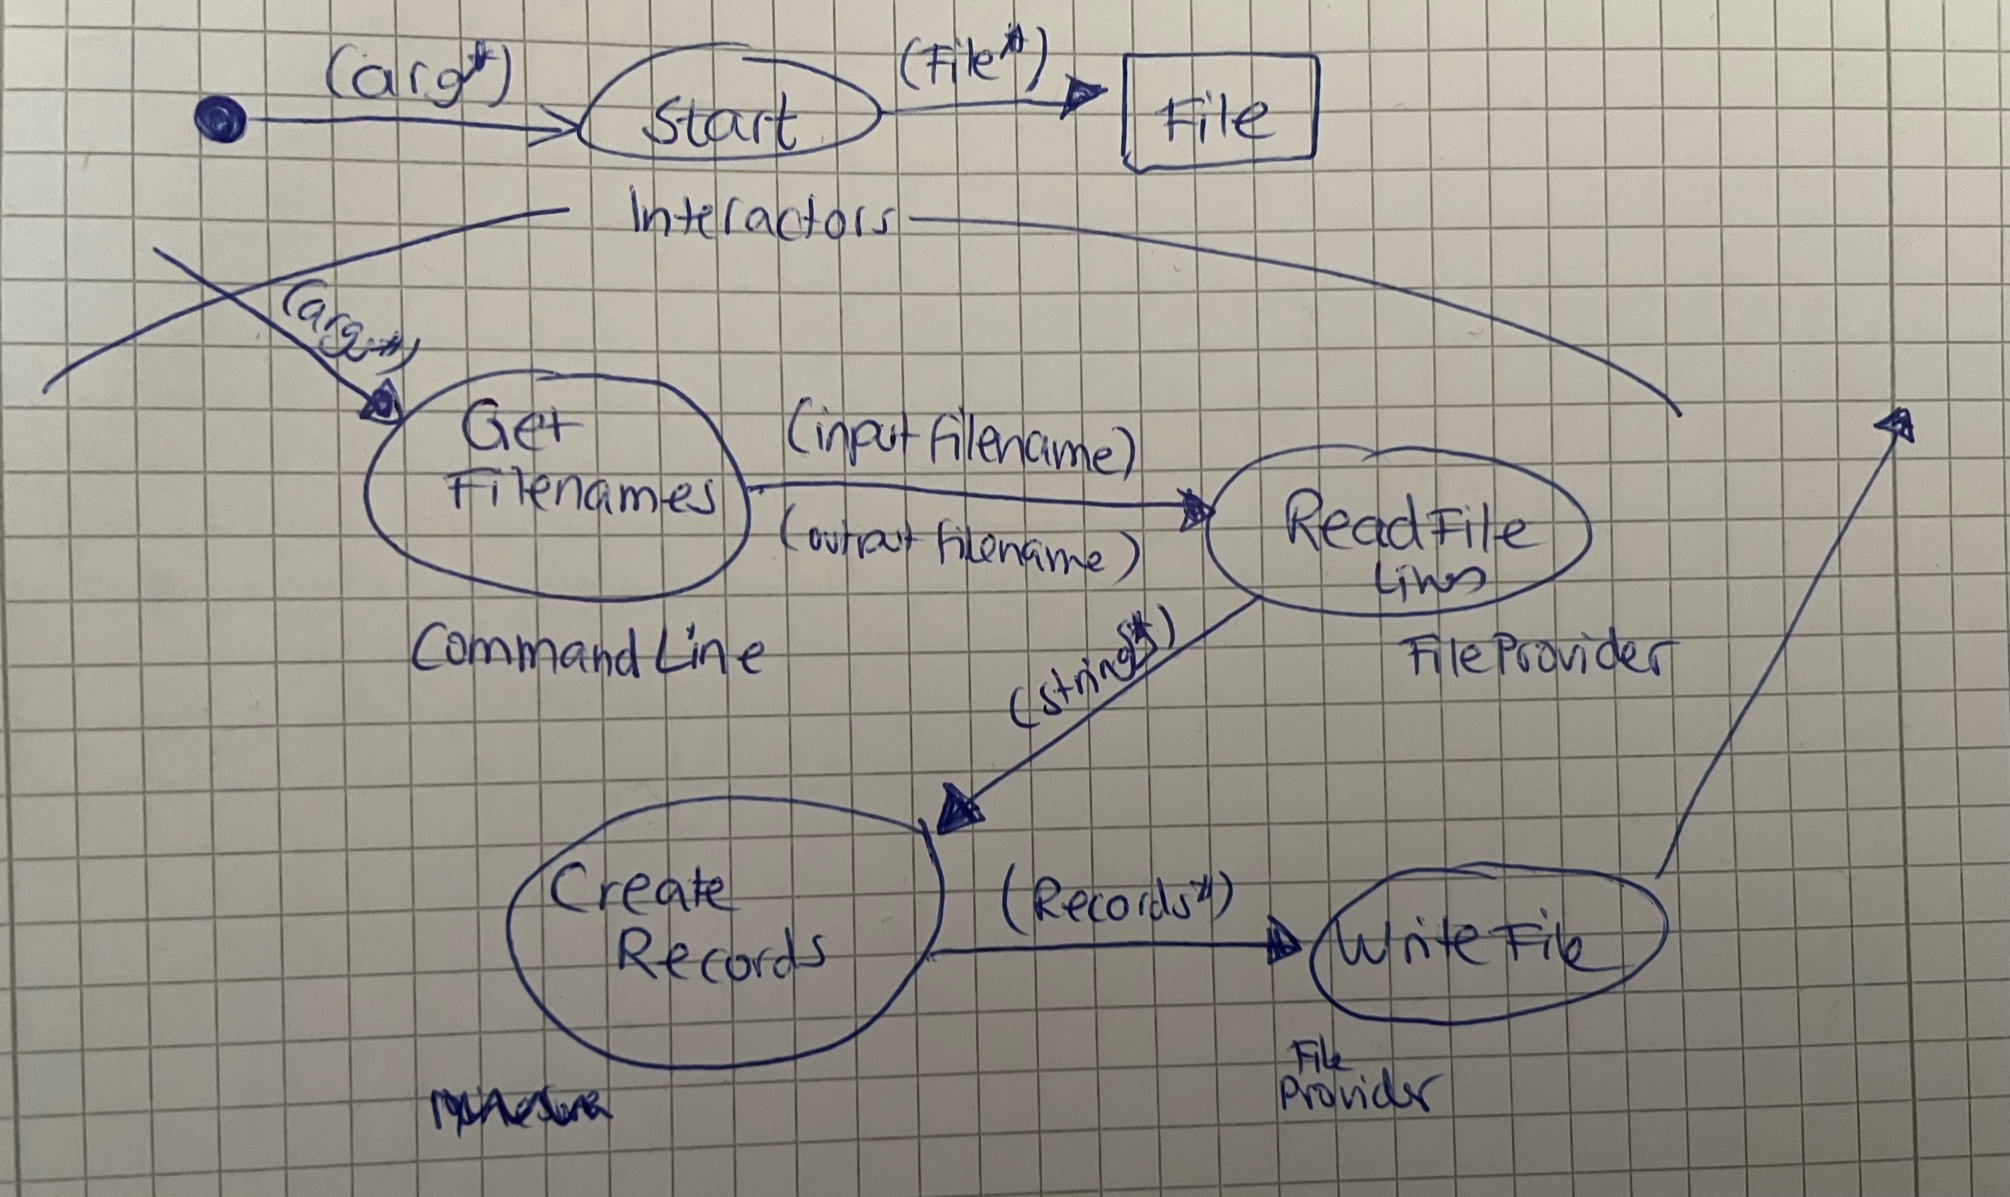 (arg*)
Start
(File*)
File
Interactors
(arg*)
Get
Filenames
(input filename)
(output filename)
ReadFile
Lines
CommandLine
FileProvider
(string*)
Create
Records
(Records*)
WriteFile
File
Provider